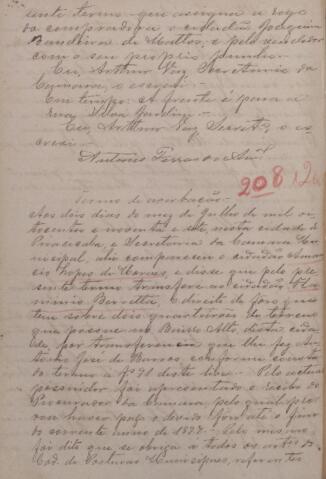 sente termo que assigna a rogo
do comprador o cidadão Joaquim
Bandeira de Mattos, e pelo vendedor
com o seu proprio punho.
Eu, Arthur Vaz Secretario da
Camara, o escrevi.
Em tempo: A frente é para a
rua
Eu, Arthur Vaz Secretº, o es-
crevi.
Antonio
208
Termo de
Aos dois dias do mez de Julho de mil oi-
tocentos e noventa e sete, nesta cidade de
Piracicaba, e Secretaria da Camara Mu-
nicipal, ahi compareceu o cidadão
Lopes de, e disse que pelo pre-
sente termo transfere ao cidadão
Beretta, o direito de foro que
tem sobre dois quarteirões de terreno
que possue no Bairro Alto, desta cida-
de, por transferencia que lhe fez An-
tonio José de Barros, conforme consta
do termo nº 71 deste livro. Pelo actual
possuidor foi apresentado o recibo do
Procurador da Camara pelo qual pro-
vou haver pago o devido foro até o fim
do corrente anno de 1897. Pelo mesmo
foi dito que se obriga a todos os artºs do
Cod. de Posturas Municipaes, referentes